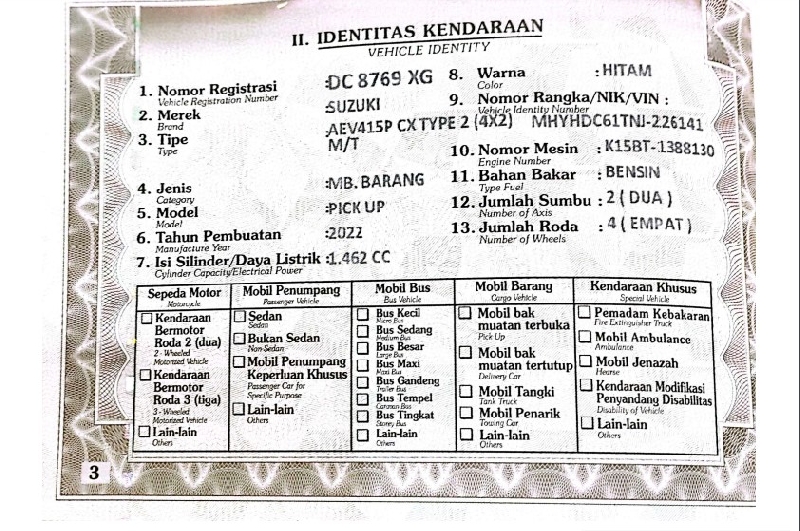 II. IDENTITAS KENDARAAN
VEHICLE IDENTITY
1. Nomor Registrasi :DC 8769 XG
Vehicle Registration Number
2. Merek :SUZUKI
Brand
3. Tipe :AEV415P CX TYPE 2 (4X2) M/T
Type
4. Jenis :MB. BARANG
Category
5. Model :PICK UP
Model
6. Tahun Pembuatan :2022
Manufacture Year
7. Isi Silinder/Daya Listrik :1.462 CC
Cylinder Capacity/Electrical Power
8. Warna : HITAM
Color
9. Nomor Rangka/NIK/VIN :
Vehicle Identity Number
MHYHDC61TNJ-226141
10. Nomor Mesin : K15BT-1388130
Engine Number
11. Bahan Bakar : BENSIN
Type Fuel
12. Jumlah Sumbu : 2 ( DUA )
Number of Axis
13. Jumlah Roda : 4 ( EMPAT )
Number of Wheels
Sepeda Motor
Motorcycle
Kendaraan
Bermotor
Roda 2 (dua)
2 - Wheeled
Motorized Vehicle
Kendaraan
Bermotor
Roda 3 (tiga)
3 - Wheeled
Motorized Vehicle
Lain-lain
Others
Mobil Penumpang
Passenger Vehicle
Sedan
Sedan
Bukan Sedan
Non-Sedan
Mobil Penumpang
Keperluan Khusus
Passenger Car for
Specific Purpose
Lain-lain
Others
Mobil Bus
Bus Vehicle
Bus Kecil
Micro Bus
Bus Sedang
Medium Bus
Bus Besar
Large Bus
Bus Maxi
Maxi Bus
Bus Gandeng
Trailer Bus
Bus Tempel
Caravan Bus
Bus Tingkat
Storey Bus
Lain-lain
Others
Mobil Barang
Cargo Vehicle
Mobil bak
muatan terbuka
Pick Up
Mobil bak
muatan tertutup
Delivery Car
Mobil Tangki
Tank Truck
Mobil Penarik
Towing Car
Lain-lain
Others
Kendaraan Khusus
Special Vehicle
Pemadam Kebakaran
Fire Extinguisher Truck
Mobil Ambulance
Ambulance
Mobil Jenazah
Hearse
Kendaraan Modifikasi
Penyandang Disabilitas
Disability of Vehicle
Lain-lain
Others
3